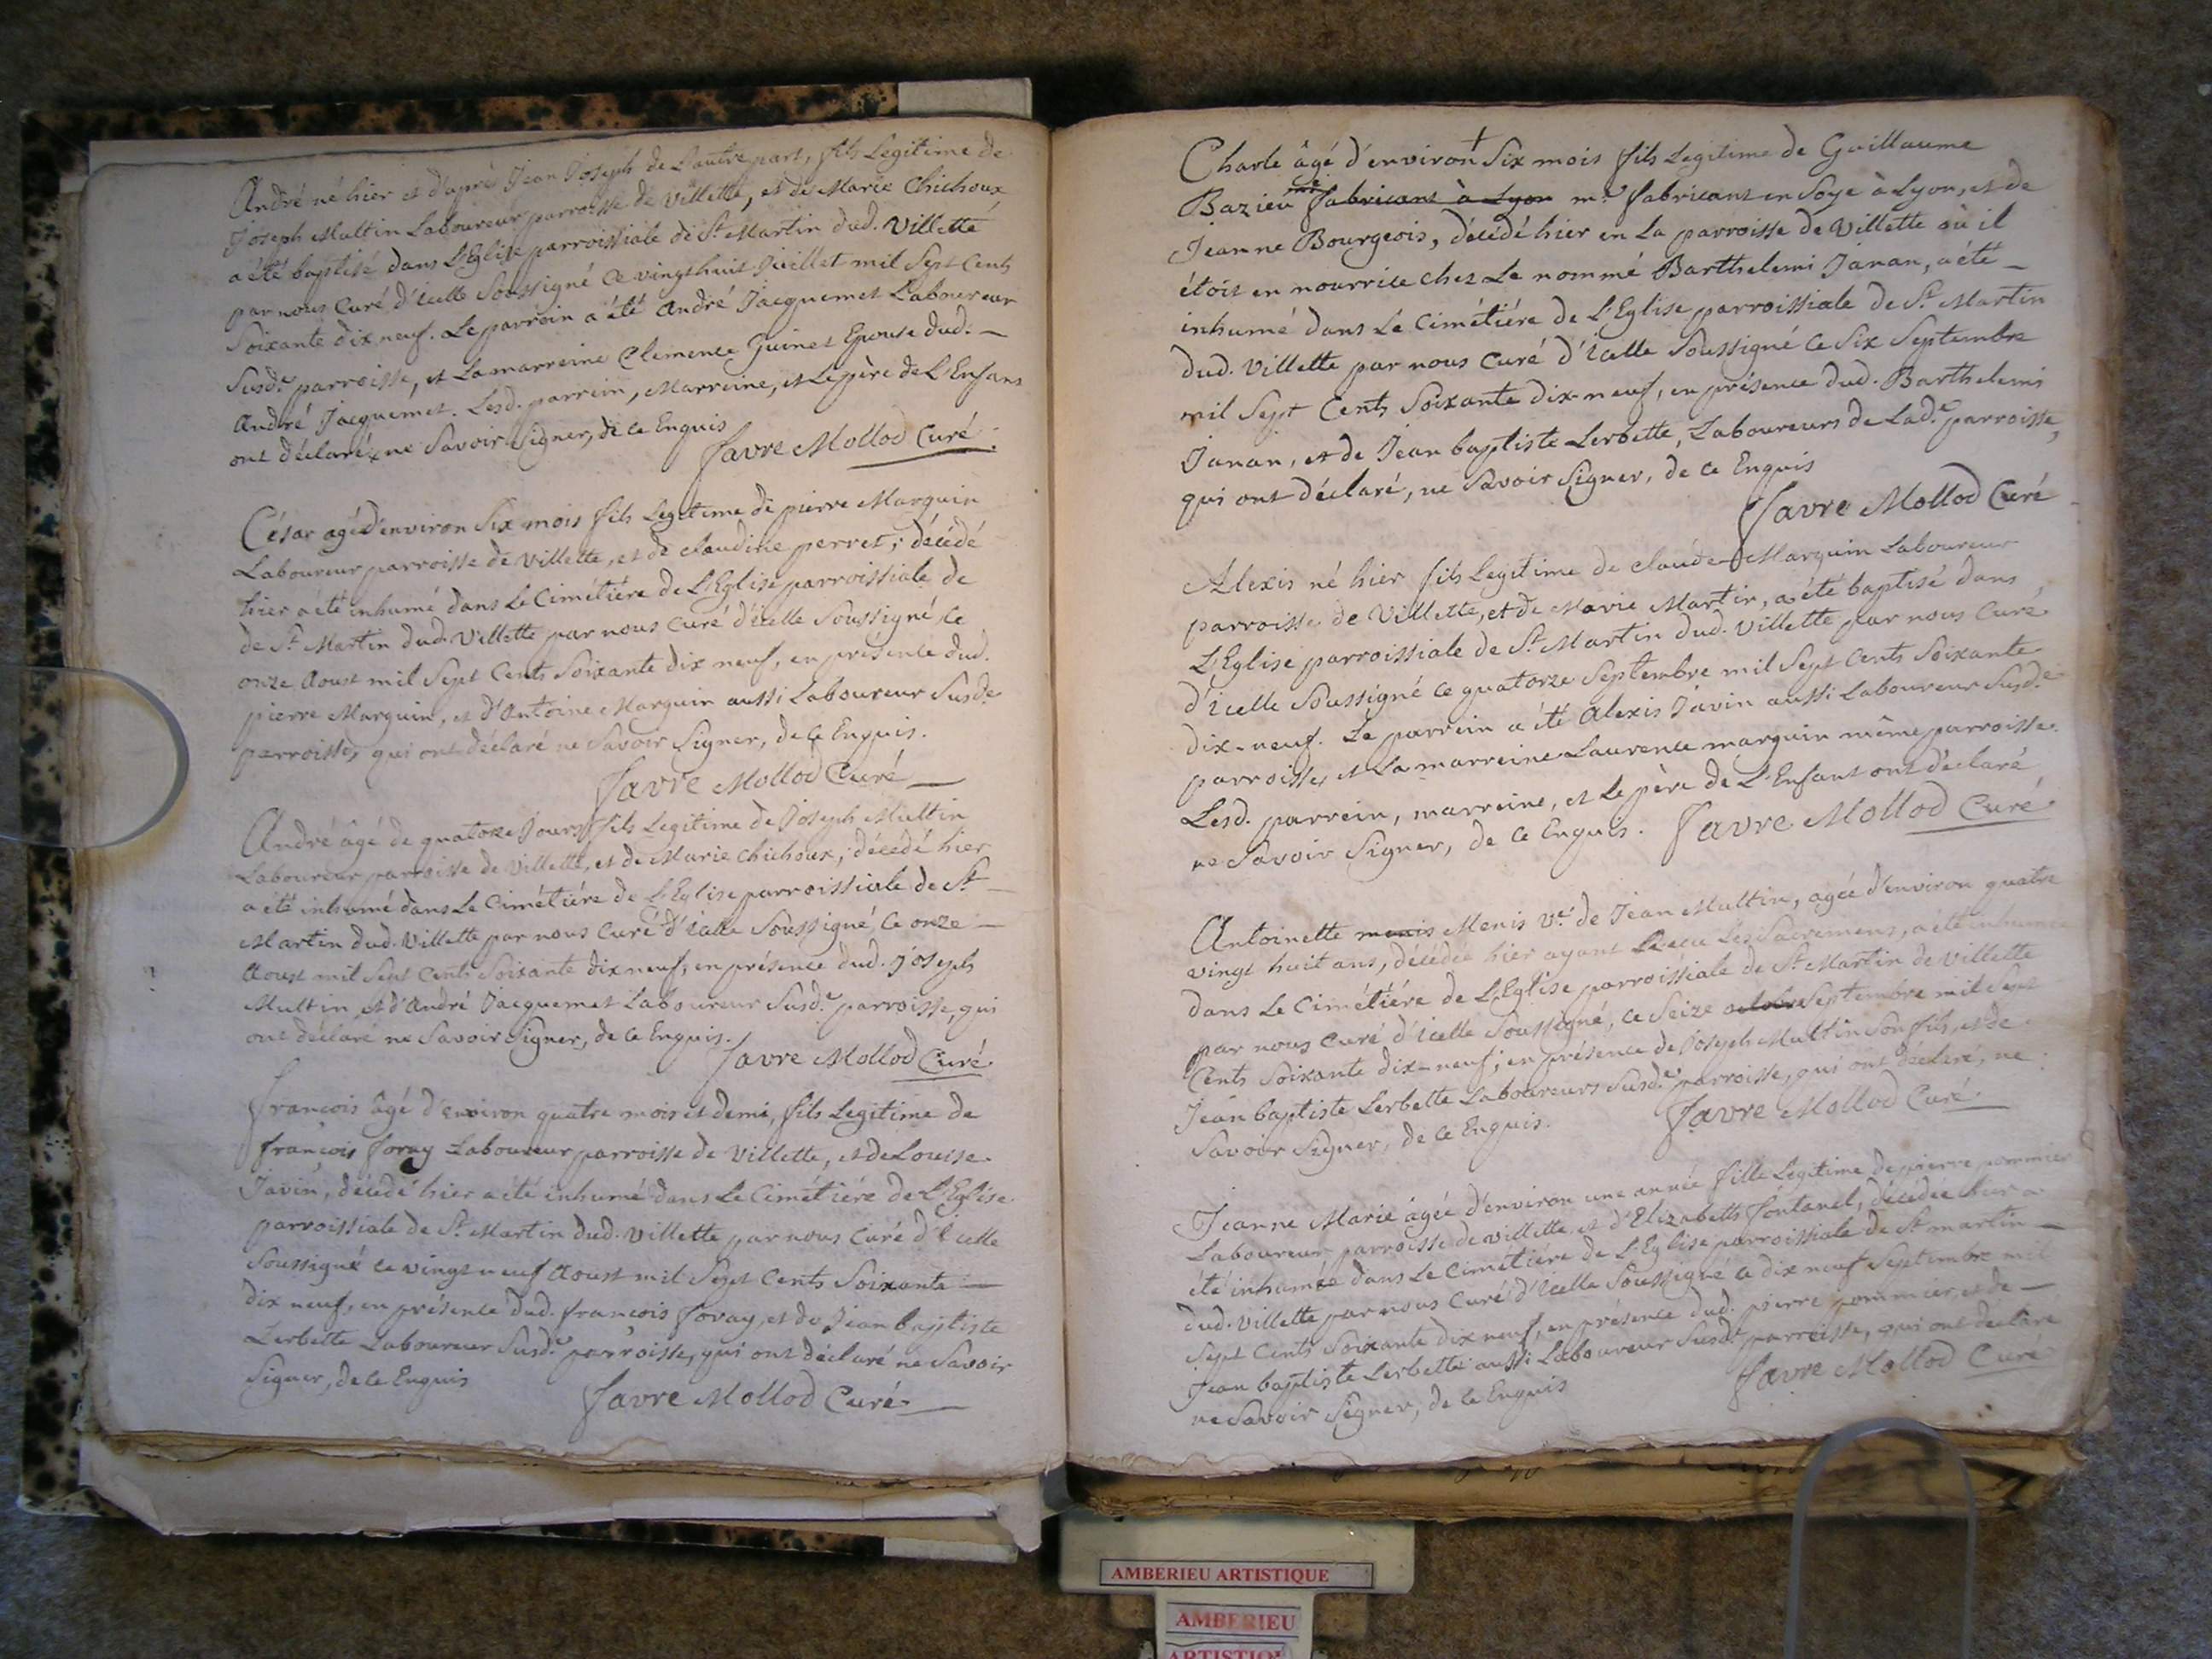 André né hier et d'après Jean Joseph de L'autre part, fils Legitime de
Joseph Multin Laboureur parroisse de Villette, et de Marie Chichoux
a été baptisé dans L'Eglise parroissiale de St Martin dud. Villette
par nous Curé d'icelle Soussigné Ce vingt huit Juillet mil Sept Cents
Soixante dix neuf. Le parrein a été André Jacquemet Laboureur
Susde parroisse, et La marreine Clemence Guinet Epouse dud. —
André Jacquemet. Lesd. parrein, Marreine, et Le père de L'Enfant
ont déclaré, ne Savoir Signer, de ce Enquis
Favre Mollod Curé.
César agé d'environ Six mois fils Legitime de pierre Marquin
Laboureur parroisse de Villette, et de claudine perret; décédé
hier a été inhumé dans Le Cimétiére de L'Eglise parroissiale de
de St Martin dud. Villette par nous Curé d'icelle Soussigné ce
onze Aoust mil Sept Cents Soixante dix neuf, en présence dud.
pierre Marquin, et d'Antoine Marquin aussi Laboureur Susde
parroisse, qui ont déclaré ne Savoir Signer, de ce Enquis.
Favre Mollod Curé —
André âgé de quatorze Jours fils Legitime de Joseph Multin
Laboureur parroisse de Villette, et de Marie Chichoux; décédé hier
a été inhumé dans Le Cimétiére de L'Eglise parroissiale de St —
Martin dud. Villette par nous Curé d'icelle Soussigné, ce onze —
Aoust mil Sept Cents Soixante dix neuf, en présence dud. Joseph
Multin, et d'André Jacquemet Laboureur Susde parroisse, qui
ont déclaré ne Savoir Signer, de ce Enquis.
Favre Mollod Curé
françois âgé d'environ quatre mois et demi, fils Legitime de
françois foray Laboureur parroisse de Villette, et de Louise
Javin, décédé hier a été inhumé dans Le Cimétiére de L'Eglise
parroissiale de St Martin dud. Villette par nous Curé d'icelle
Soussigné ce vingt neuf Aoust mil Sept Cents Soixante —
dix neuf, en présence dud. françois foray, et de Jean baptiste
Lerbette Laboureur Susde parroisse, qui ont déclaré ne Savoir
Signer, de ce Enquis
Favre Mollod Curé —
Charle âgé d'environ + Six mois fils Legitime de Guillaume
Bazieu fabricant à Lyon me fabricant en Soye à Lyon, et de
Jeanne Bourgeois, décédé hier en La parroisse de Villette où il
étoit en nourrice chez Le nommé Barthelemi Janan, a été —
inhumé dans Le Cimétiére de L'Eglise parroissiale de St Martin
dud. Villette par nous Curé d'icelle Soussigné Ce Six Septembre
mil Sept Cents Soixante dix-neuf, en présence dud. Barthelemi
Janan, et de Jean baptiste Lerbette, Laboureurs de Lade parroisse,
qui ont déclaré, ne Savoir Signer, de ce Enquis
Favre Mollod Curé
Alexis né hier fils Legitime de claude Marquin Laboureur
parroisse de Villette, et de Marie Martin, a été baptisé dans
L'Eglise parroissiale de St Martin dud. Villette par nous Curé
d'icelle Soussigné ce quatorze Septembre mil Sept Cents Soixante
dix-neuf. Le parrein a été Alexis Javin aussi Laboureur Susde
parroisse, et La marreine Laurence marquin même parroisse.
Lesd. parrein, marreine, et Le père de L'Enfant ont déclaré
ne Savoir Signer, de ce Enquis. Favre Mollod Curé
Antoinette menis Menis ve de Jean Multin, agée d'environ quatre
vingt huit ans, décédée hier ayant Recu Les Sacremens, a été inhumée
dans Le Cimétiére de L'Eglise parroissiale de St Martin de Villette
par nous Curé d'icelle Soussigné, ce Seize octobre Septembre mil Sept
Cents Soixante dix-neuf; en présence de Joseph Multin Son fils, et de
Jean baptiste Lerbette Laboureurs Susde parroisse, qui ont déclaré, ne
Savoir Signer, de ce Enquis. Favre Mollod Curé
Jeanne Marie âgée d'environ une année fille Legitime de pierre pommier
Laboureur parroisse de villette, et d'Elizabeth fontanel, décédée hier a
été inhumée dans Le Cimétiére de L'Eglise parroissiale de St martin —
dud. Villette par nous Curé d'icelle Soussigné ce dix neuf Septembre mil
Sept Cents Soixante dix neuf, en présence dud. pierre pommier, et de —
Jean baptiste Lerbette aussi Laboureur Susde parroisse, qui ont déclaré
ne Savoir Signer, de ce Enquis Favre Mollod Curé
AMBERIEU ARTISTIQUE
AMBERIEU
ARTISTIQUE